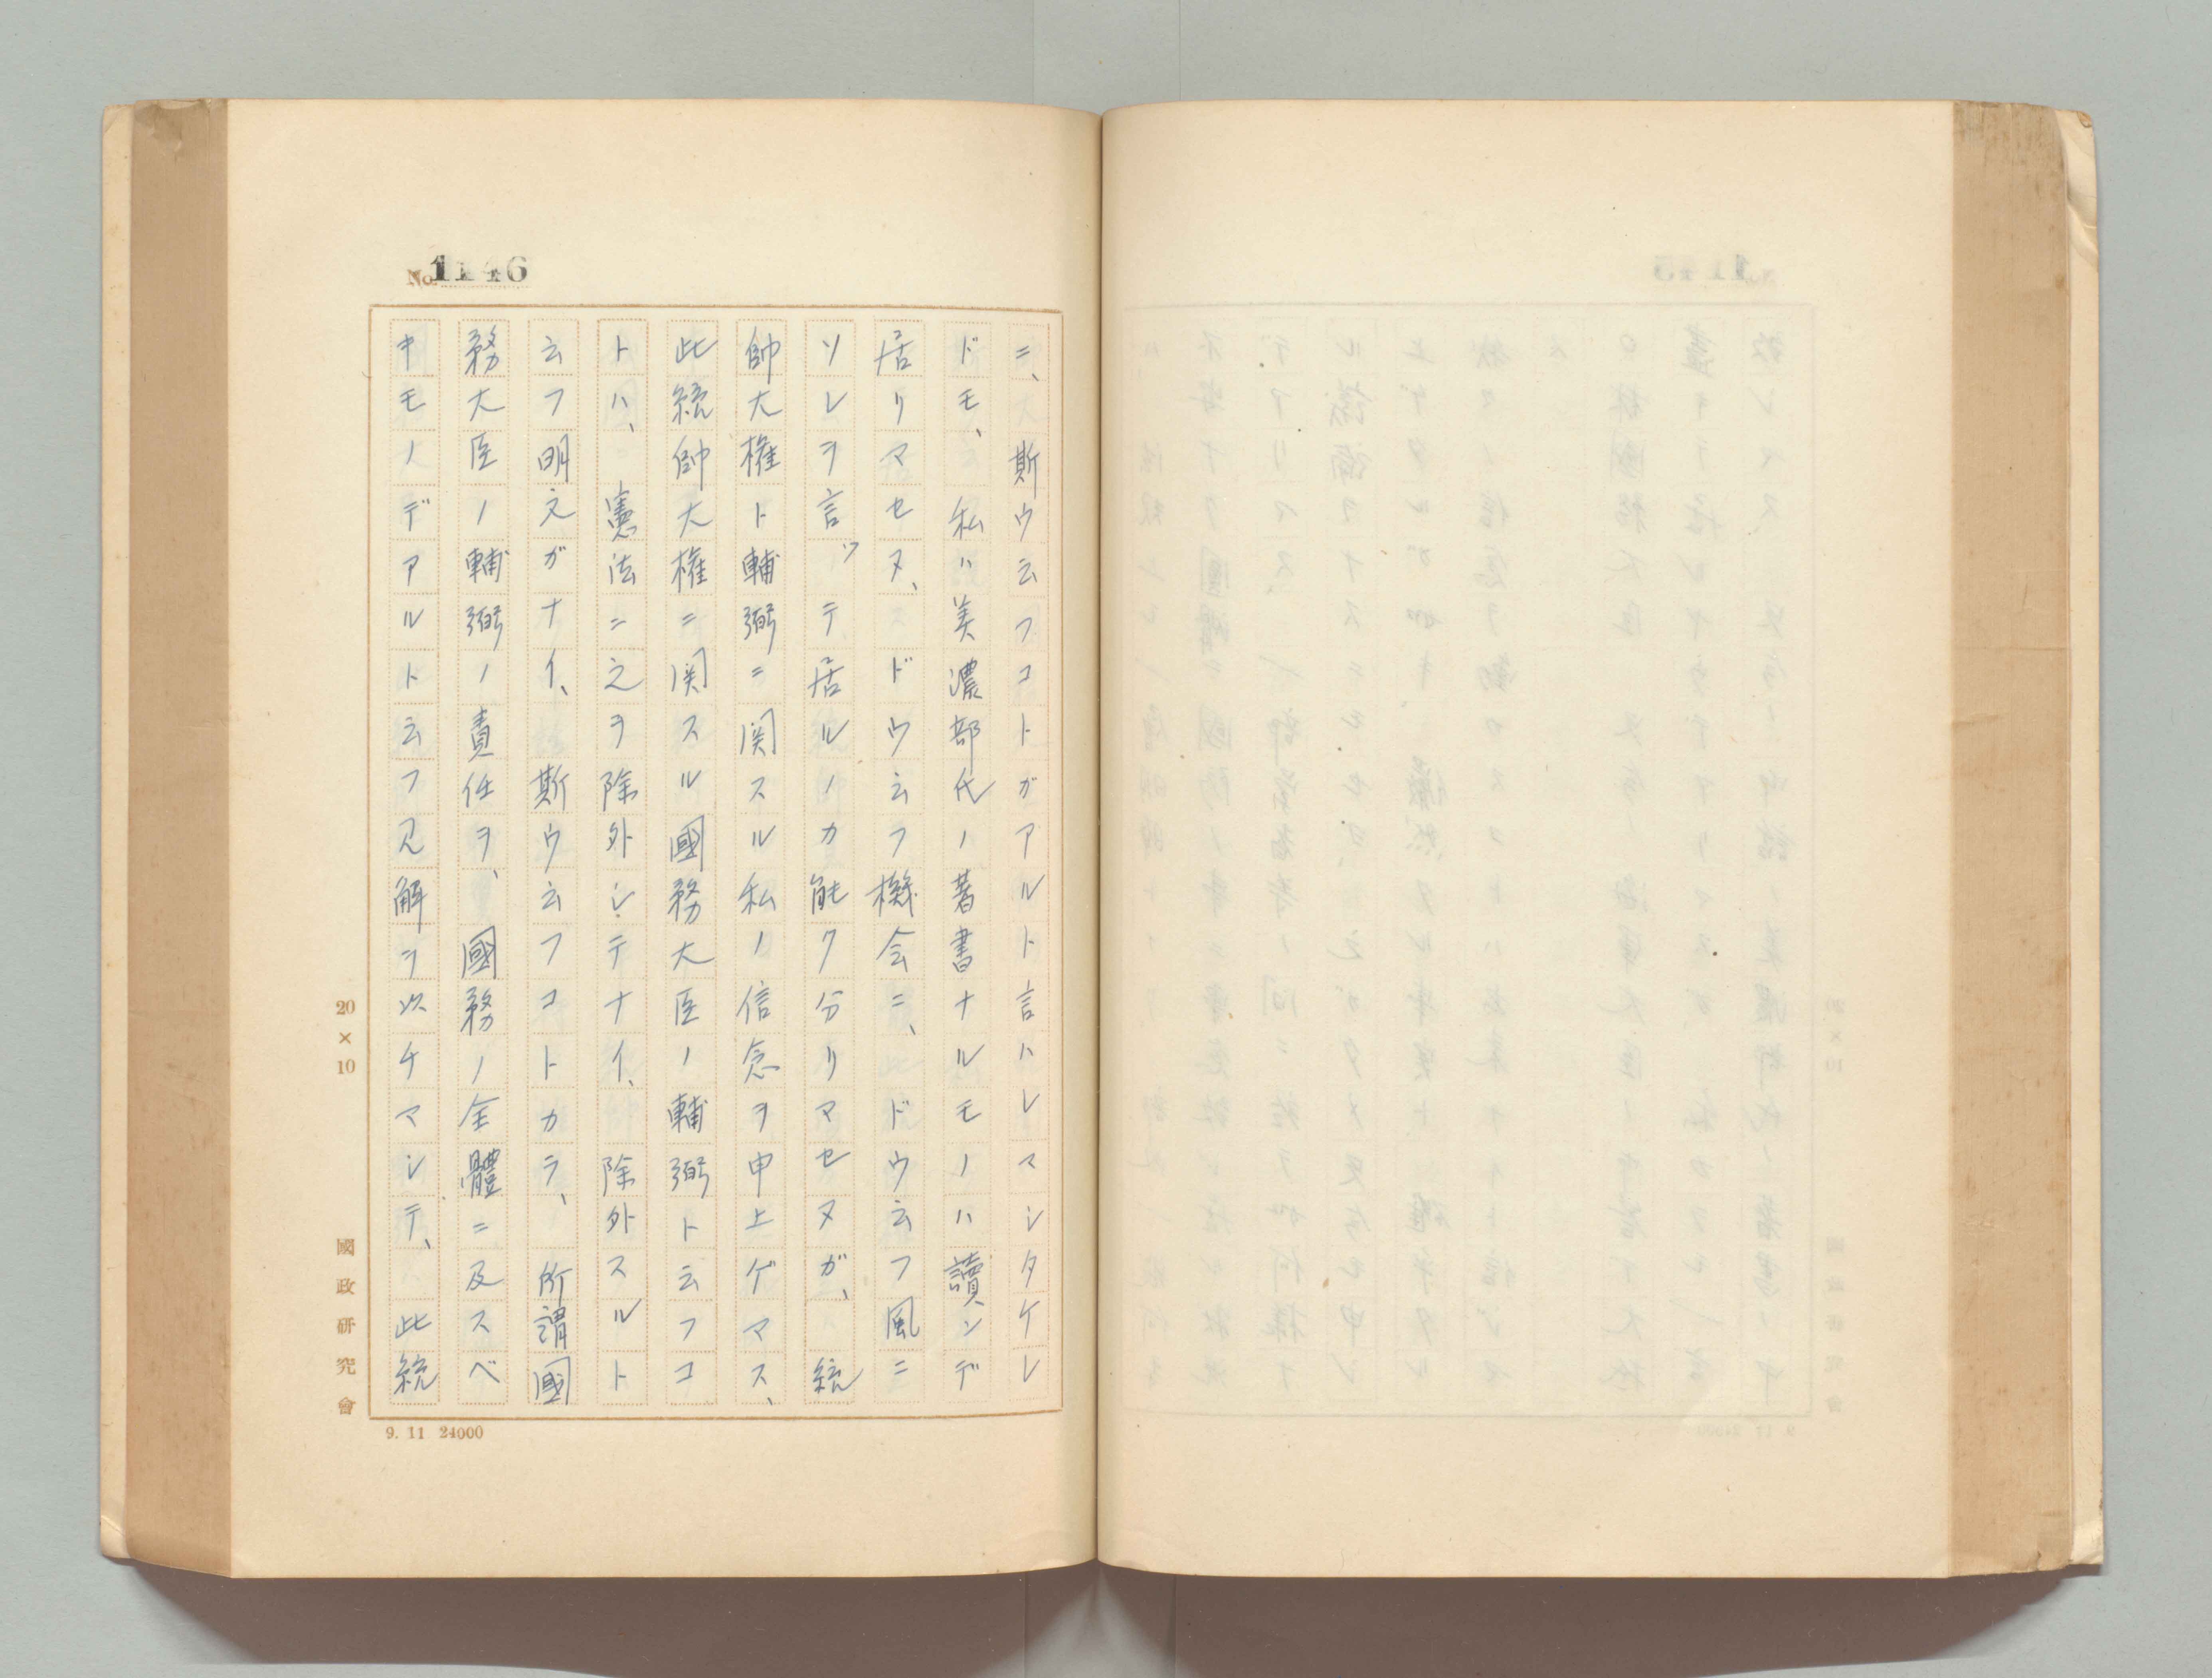 No. 1146
ニ、斯ウ云フコトガアルト言ハレマシタケレ
ドモ、私ハ美濃部代ノ著書ナルモノハ讀ンデ
居リマセヌ、ドウ云フ機会ニ、ドウ云フ風ニ
ソレヲ言ツテ居ルノカ能ク分リマセヌガ、統
帥大権ト輔弼ニ関スル私ノ信念ヲ申上ゲマス、
此統帥大権ニ関スル國務大臣ノ輔弼ト云フコ
トハ、憲法ニ之ヲ除外シテナイ、除外スルト
云フ明文ガナイ、斯ウ云フコトカラ、所謂國
務大臣ノ輔弼ノ責任ヲ、國務ノ全體ニ及スベ
キモノデアルト云フ見解ヲ以チマシテ、此統
20×10
國政研究會
9. 11 24000